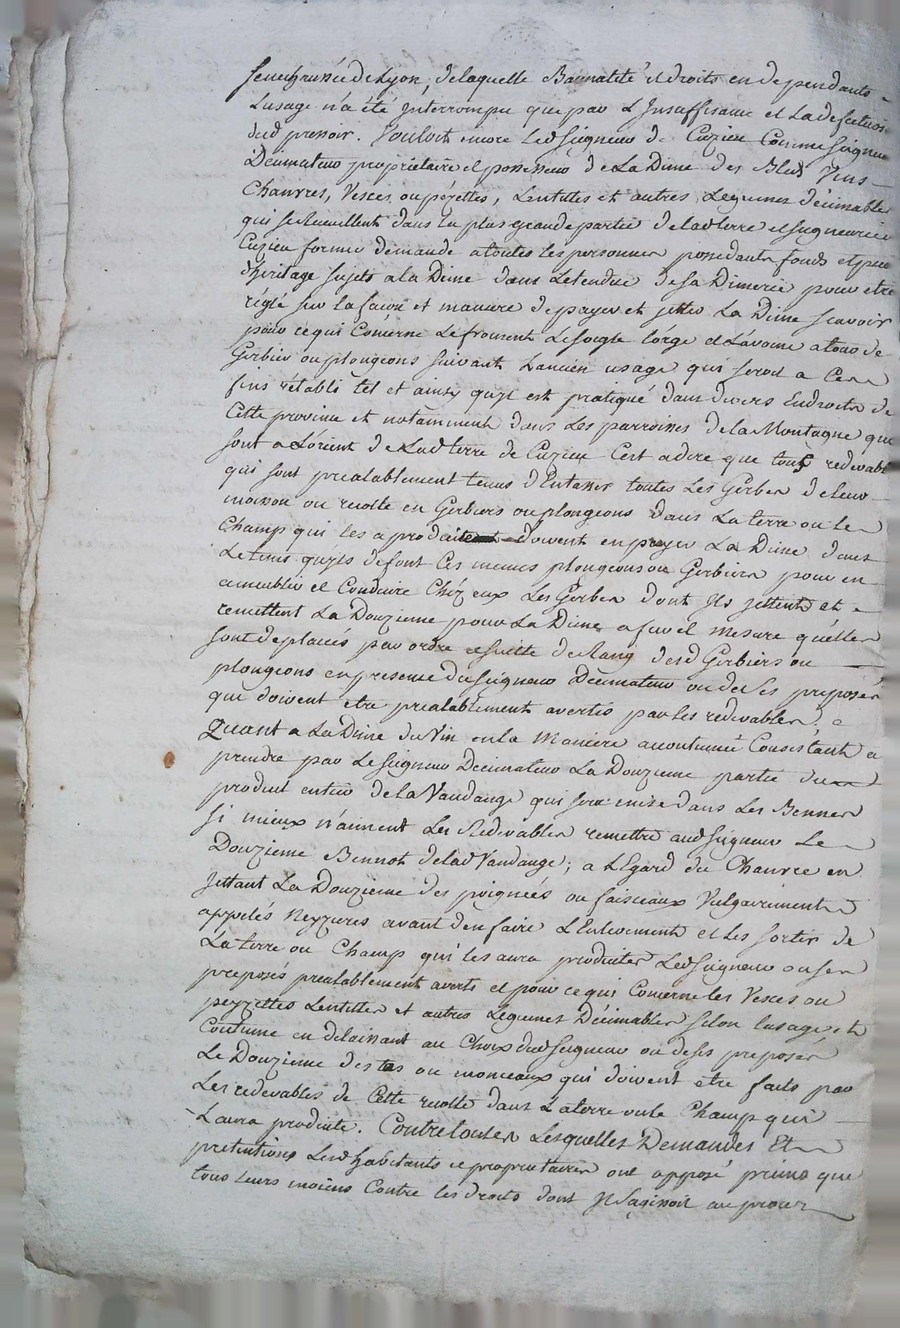 senechaussée de Lyon, de laquelle Bannalité et droits en dependants
Lusage n'a été Interrompu que par L'Insuffisance et La defectuosi
dud pressoir. Vouloit encore Led Seigneur de Cuzieu Comme Seigneur
Décimateur propriétaire et possesseur de La Dime des Bleds Vins
Chanvres, Vesces, ou pézettes, Lentilles et autres Legumes décimables
qui se Recueillent dans La plus grande partie de lad terre et seigneurie de
Cuzieu former demande a toutes les personnes possedants fonds et
héritage sujets a la Dime dans Letendue de sa Dimerie pour etre
réglé sur la façon et maniere de payer et jetter La Dime scavoir
pour ce qui Concerne Le froment Le seigle Lorge et Lavoine a tour de
Gerbier ou plongeons suivant Lancien usage qui seroit a Ces
fins rétabli tel et ainsy quyl est pratiqué dans divers Endroits de
Cette province et notamment dans Les parroisses de la Montagne qui
sont a Lorient de Lad terre de Cuzieu Cest a dire que tous redevable
qui sont prealablement tenus d'Entasser toutes Les Gerbes de leur
moisson ou recolte en Gerbiers ou plongeons dans La terre ou le
Champ qui les a produites doivent en payer La Dime dans
Le tems quyls defont Ces memes plongeons ou Gerbiers pour en
ameublir et Conduire Chéz eux Les Gerbes dont Ils jettent et
remettent La Douzieme pour La Dime a fur et mesure quelles
sont deplacées par ordre et suitte de Rang desd Gerbiers ou
plongeons en presence du Seigneur Décimateur ou de ses preposés
qui doivent etre prealablement avertis par les redevables;
Quant a La Dime du Vin en la Maniere accoutumée Consistant a
prendre par Le Seigneur Decimateur La Douzieme partie du
produit entier de la Vandange qui sera mise dans Les Bennes
si mieux n'aiment Les Redevables remettre aud Seigneur Le
Douzieme Bennot de lad Vandange; a LEgard du Chanvre en
Jettant La Douzieme des poignées ou faisceaux Vulgairement
appelés Neyzieres avant den faire L'Enlevement et Les sortir de
La terre ou Champ qui les aura produites Led Seigneur ou ses
preposés prealablement avertis et pour ce qui Concerne les Vesces ou
pezzettes Lentilles et autres Legumes Décimables selon lusage et
Coutume en delaissant au Choix dud Seigneur ou de ses preposés
Le Douzieme des tas ou monceaux qui doivent etre faits par
Les redevables de Cette recolte dans La terre ou le Champ qui
Laura produite. Contre toutes Lesquelles Demandes Et
pretentions Lesd habitants et proprietaires ont opposé que
tous leurs moiens Contre les droits dont Il Sagissoit au procez